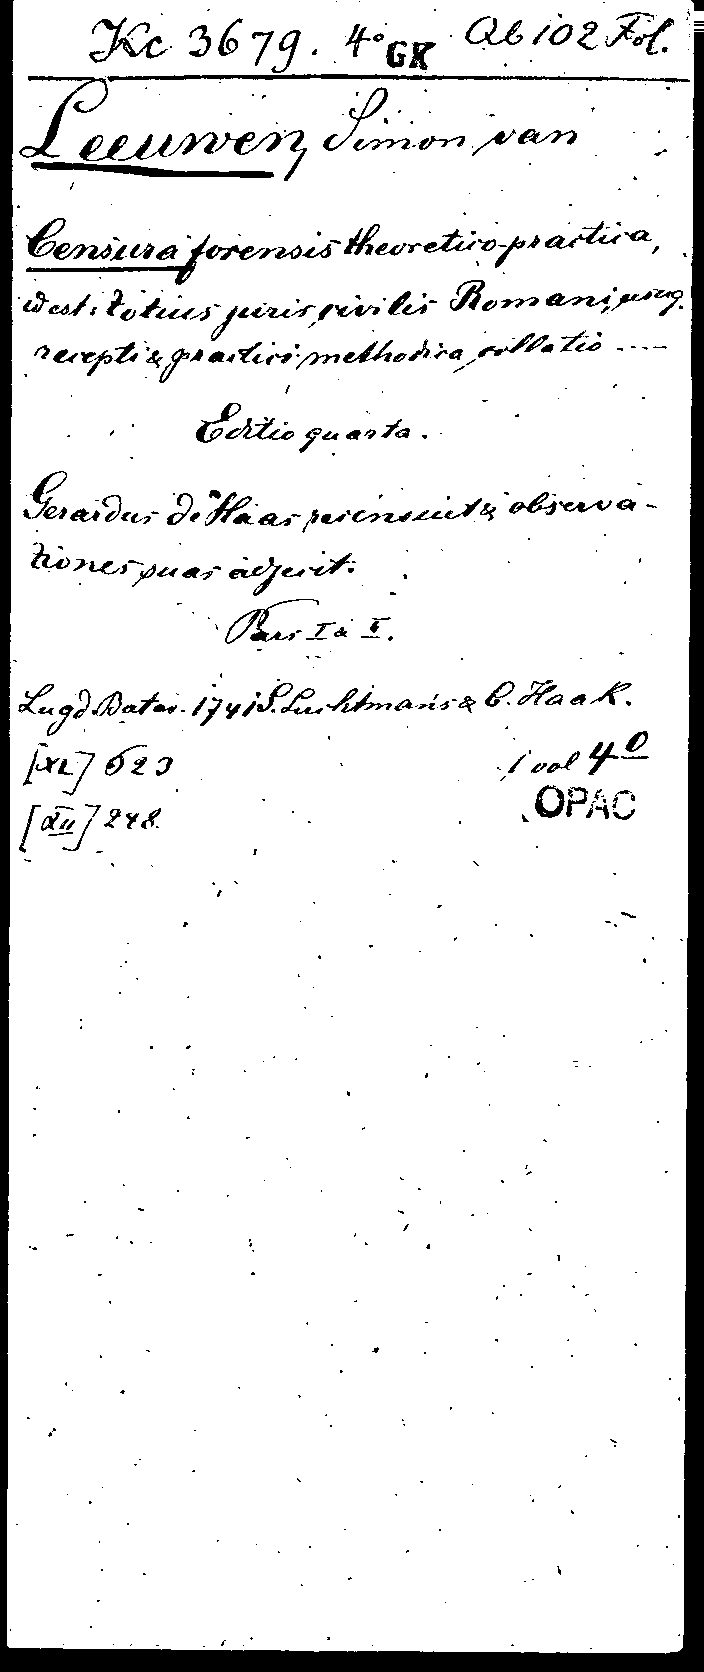 Kc 3679. 4° GK Qb 102 Fol.
Leeuwen, Simon van
Censura forensis theoretico-practica,
id est: totius juris civilis Romani, usuq.
recepti & practici methodica collatio ----
Editio quarta.
Gerardus de Haas recensuit & observa-
tiones suas adjecit.
Pars I & II.
Lugd. Batav. 1741 S. Luchtmans & C. Haak.
[XL] 623 1 vol 4°
[XII] 248.
OPAC